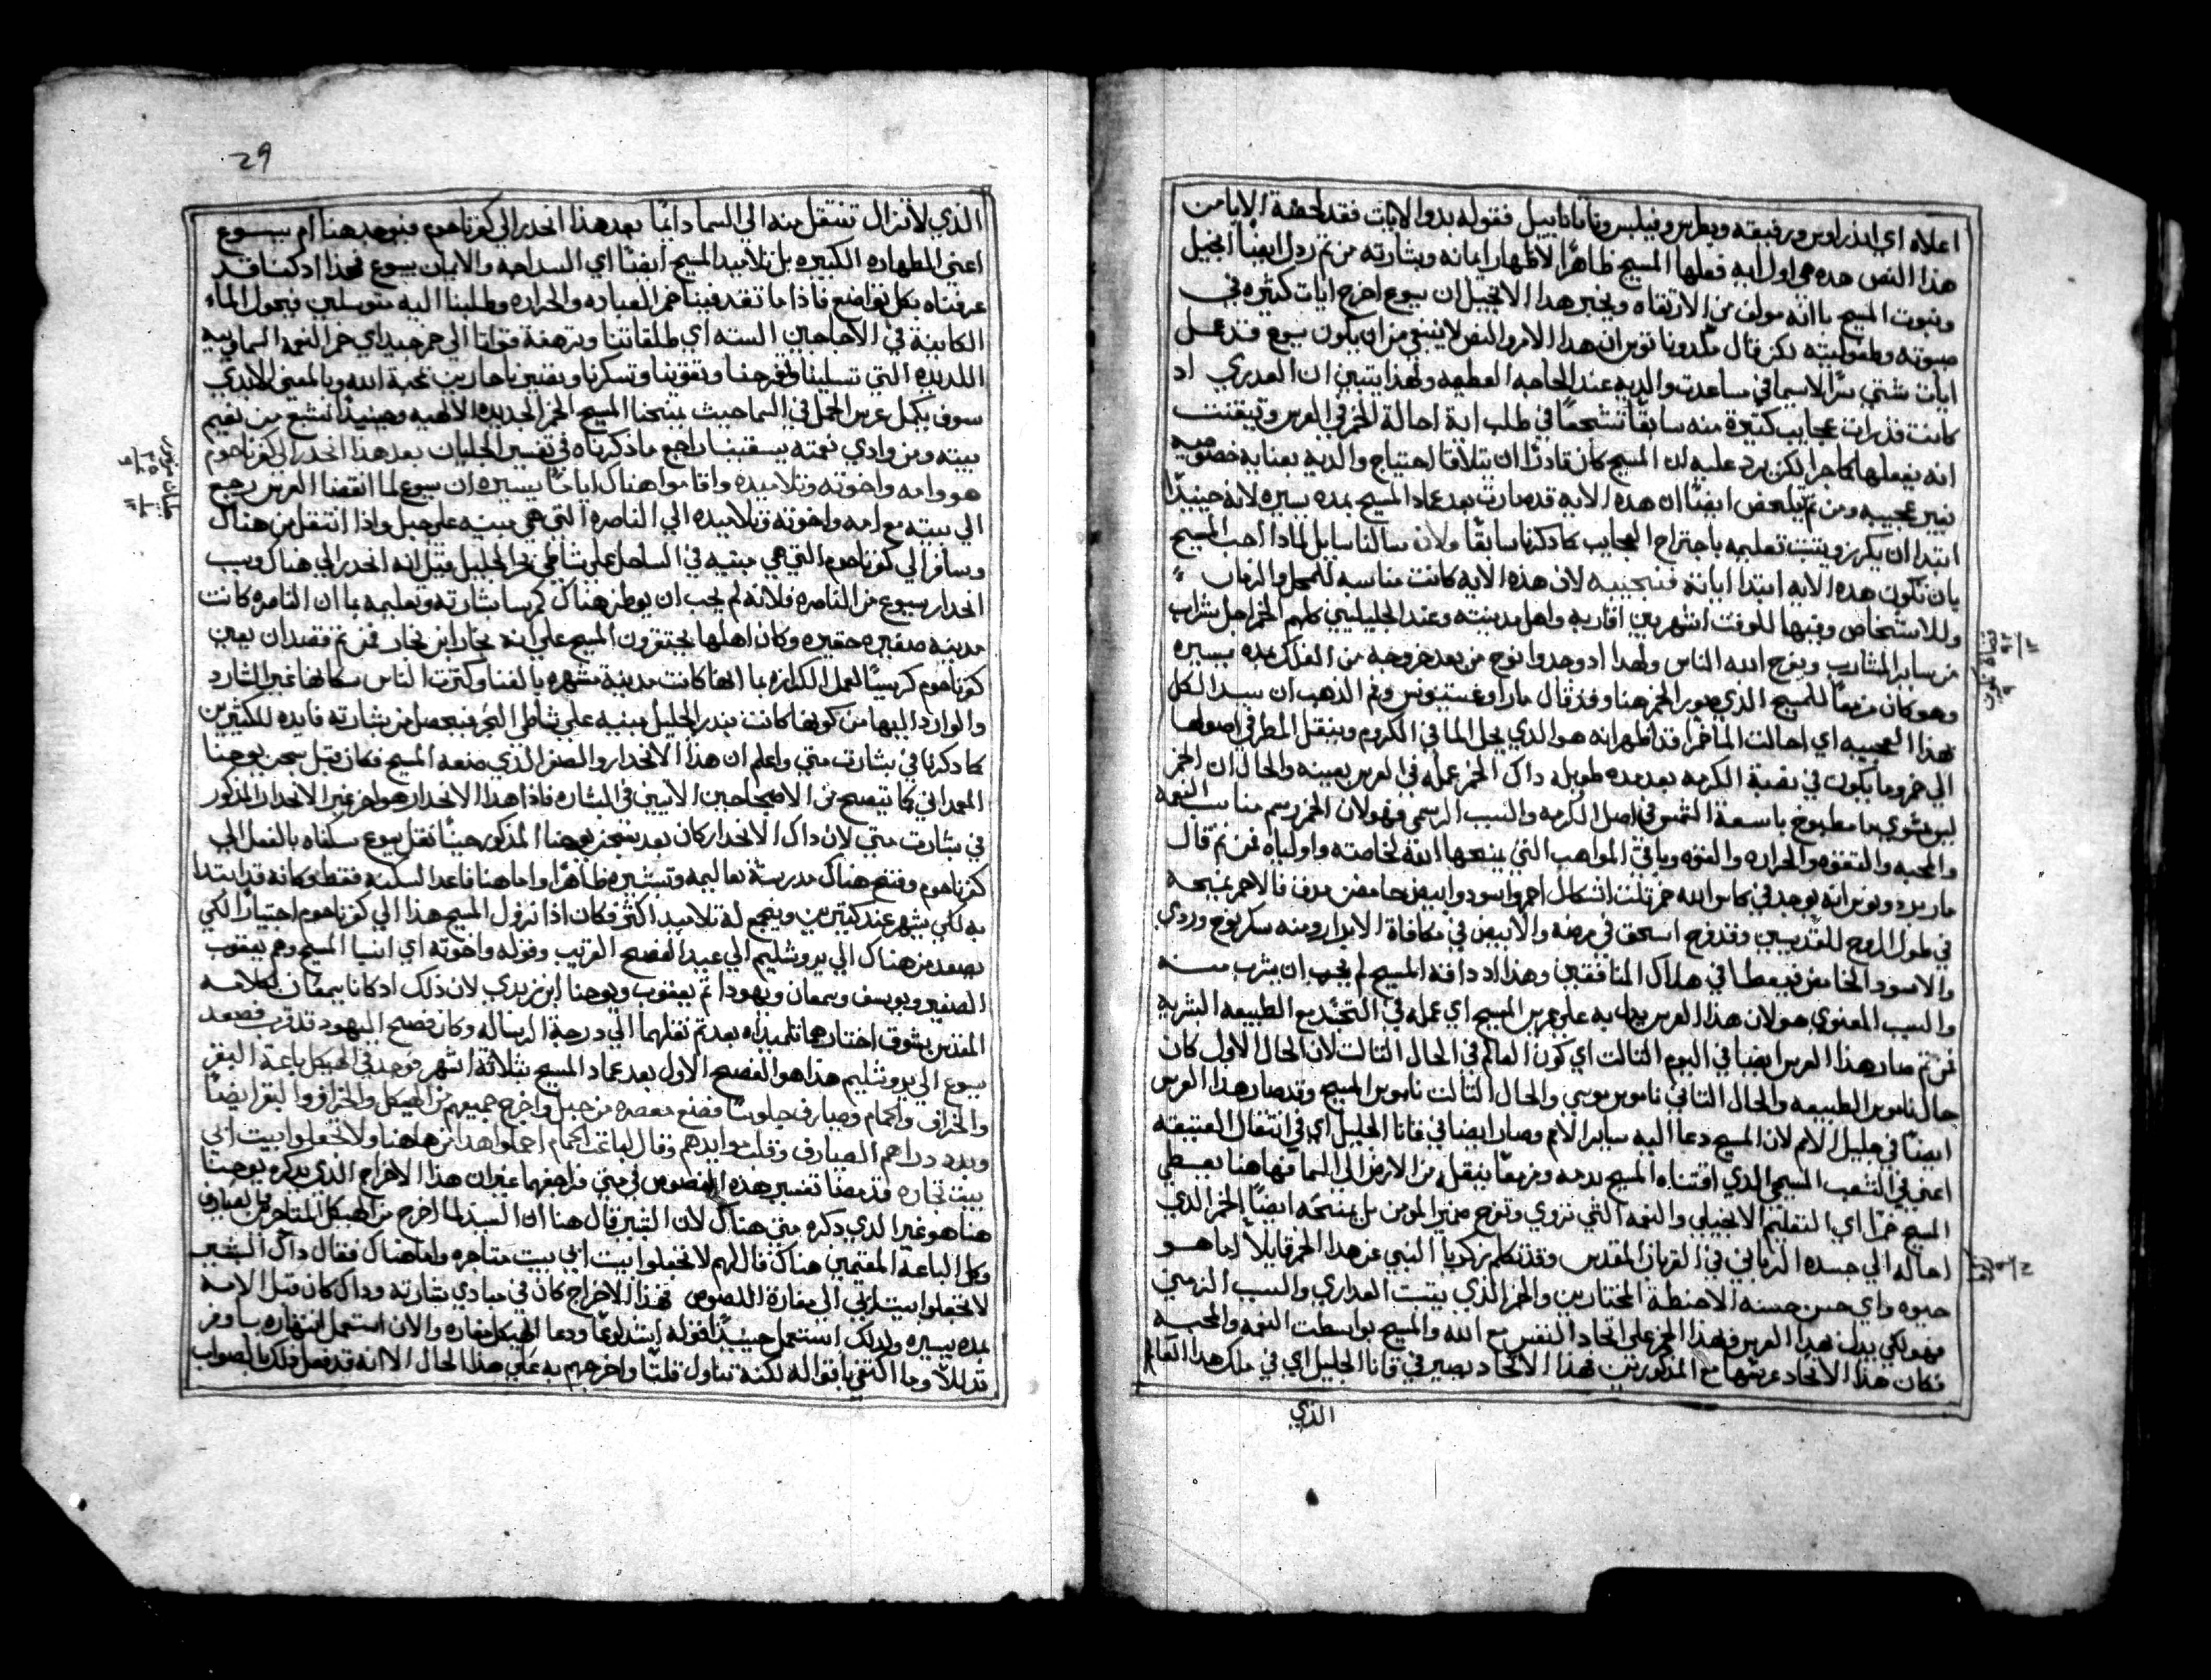 اعلاه اي اندراوس ورفيقه وبطرس وفيلبس وناتانابيل فقوله بدو الايات فقد الايا من
هذا النص هده هي اول ايه فعلها المسيح ظاهرًا لاظهار ايمانه وبشارته من تم ردل ايضًا انجيل
المسيح باانه مولف من الارتقاه ويخبر هدا الانجيل ان يسوع اخرج ايات كتيره في
صبوته وطفوليته لكن قال ملدوناتوس ان هدا الامر والنص لا ينبغي من ان يكون يسوع قد عمل
ايات شتي سرًا لاسيما في ساعدت والديه عند الحاجه العظيمه ولهذا يتبين ان العدري اد
كانت قد رات عجايب كتيرة منه سابقًا تشجعًا في طلب اية احالة الخمر في العرس وتيقنت
انه يفعلها كما جرا لكن يرد عليه ان المسيح كان قادرًا ان يتلافا احتياج والديه بعنايه خصوصيه
غير عجيبه ومن تم يلخص ايضًا ان هده الايه قد صارت بعد عماد المسيح بمده يسيره لانه حينيدًا
ابتدا ان يكرز ويتبت تعليمه باجتراح العجايب كما دكرنا سابقًا ولان سالنا سايل لمادا احب المسيح
بان تكون هده الايه ابتدا اياته فنجيبه لان هذه الايه كانت مناسبه للمحل والزمان
وللاشخاص وفيها للوقت اشهر بين اقاربه واهل مدينته وعند الجليليين كلهم الخمر اجل شراب
من ساير المشارب ويفرح الله الناس ولهدا اد وجدوا نوح من بعد خروجه من الفلك بمده يسيره
وهو كان مزمعًا للمسيح الدي صور الخمر هنا وقد قال مار اوغستينوس وفم الدهب ان سيد الكل
بهدا العجيبه اي احالت الما خمرًا قد اظهر انه هو الدي يحل الما في الكروم وينقل المطر في اصولها
الي خمر وما يكون في نصبة الكرمه بعد مده طويله داك الخمر عمله في العرس بعينه والحال ان الخمر
ليس سوي ما مطبوخ باسعة الشمس في اصل الكرمه والسبب الرسمي فهو لان الخمر رسم مناسب النعمه
والمحبه والتقوه والحراره والقوه وباقي المواهب التي يمنحها الله لخاصته واولياه فمن تم قال
مار بردونوس انه يوجد في كاس الله خمر تلت اشكال احمر واسود وابيض حامض صرف فالاحمر يمنحه
في طول الروح للقديسين وقد فرح اسحق في مرضه والابيض في مكافاة الابرار ومنه سكر نوح وردي
والاسود الحامض فيعطا في هلاك المنافقين وهذا اد دافه المسيح لم يحب ان يشرب منه
والسبب المعنوي هو لان هذا العرس يدل به علي عرس المسيح اي عمله في التجند مع الطبيعه البشريه
فمن تم صار هذا العرس ايضا في اليوم التالت اي كون العالم في الحال التالت لان الحال الاول كان
حال ناموس الطبيعه والحال التاني ناموس موسي والحال التالت ناموس المسيح وقد صار هدا العرس
ايضًا في جليل الامم لان المسيح دعا اليه ساير الامم وصار ايضا في قانا الجليل اي في انتقال العتيقه
اعني في الشعب المسيحي الدي اقتناه المسيح بدمه ومزمعًا ينتقل من الارض الي السما فهاهنا يعطي
المسيح خمرًا اي التعليم الانجيلي والنعمه التي تروي وتفرح ضمير المومن بل يمنحه ايضًا الخمر الدي
احاله الي جسده الرباني في القربان المقدس وقد تكلم زكريا النبي عن هدا الخمر قايلاً اما هو
حيوه واي حسن حسنه الا حنطة المختارين والخمر الذي ينبت العداري والسبب الرمزي
فهو لكي يدل بهدا العرس وبهدا الخمر علي اتحاد النفس مع الله والمسيح بواسطت النعمه والمحبه
فكان هدا الاتحاد عربنها مع المدكورتين فهدا الاتحاد يصير في قانا الجليل اي في ملك هدا العالم
الذي
29
الذي لا تزال تنتقل منه الي السما دايمًا بعد هذا انحدر الي كفرناحوم فيوجد هنا ام يسوع
اعني الطهاره الكبيره بل تلاميد المسيح ايضًا اي السداجه والايمان بيسوع فحدا اد كنا قد
عرفناه بكل تواضع فاذا ما تقد فينا خمر العباده والحراره وطلبنا اليه متوسلين فيحول الماء
الكاينة في الاجاجين السته اي طلقاتنا وترهفة قواتنا الي خمر جيد اي خمر النعمه السماويه
اللديده التي تسلينا وتفرحنا وتقوينا وتسكرنا وتقنين باحارين محبة الله وبالمعني الابدي
سوف يكمل عرس الحمل في السما حيث يمنحنا المسيح الخمر الجديد الالهيه وحينيدًا نشبع من نعيم
بيته ومن وادي نعمته يسقينا راجع ما دكرناه في تفسير الجليان بعد هدا انحدر الي كفرناحوم
هو وامه واخوته وتلاميده واقاموا هناك ايامًا يسيره ان يسوع لما انقضا العرس رجع
الي بيته مع امه واخوته وتلاميده الي الناصره التي هي مبنيه علي جبل وادا انتقل من هناك
وسافر الي كفرناحوم التي هي مبنيه في الساحل علي شاطي بحر الجليل قيل انه انحدر الي هناك وسبب
انحدار يسوع من الناصره فلانه لم يحب ان يوطن هناك كرسا بشارته وتعليمه بما ان الناصره كانت
مدينه صغيره حقيره وكان اهلها يحتقرون المسيح علي انه نجار ابن نجار فمن تم قصد ان يعين
كفرناحوم كرسيًا لعمل الكرازه بما انها كانت مدينه مشهره بالغنا وكترت الناس سكانها غير الشارد
والوارد اليها من كونها كانت بندر الجليل مبنيه علي شاطي البحر فيحصل من بشارته فايده للكتيرين
كما دكرنا في بشارت متي واعلم ان هدا الانحدار والسفر الدي صنعه المسيح فكان قبل سجن يوحنا
المعمداني كما يتصح من الاصحاحين الاتيين في البشاره فاذا هدا الانحدار هو اخر غير الانحدار المدكور
في بشارت متي لان داك الانحدار كان بعد سجن يوحنا المدكور حيث نقل يسوع سكناه بالفعل الي
كفرناحوم وفتح هناك مدرسة تعاليمه وتبشيره ظاهرًا واما هنا فاعد السكنه فقط وكانه قد ابتدا
به لكي يشهر عند كتيرين ويجمع له تلاميد اكتر فكان ادا نزول المسيح هدا الي كفرناحوم اجتيازًا لكي
يصعد من هناك الي يروشليم الي عيد الفصح القريب وقوله واخوته اي انسبا المسيح وهم يعقوب
الصغير ويوسف وسمعان ويهودا تم يعقوب ويوحنا ابن زبدي لان ذلك اد كانا يسمعان كلامه
المقدس بشوق اختارهما تلميداه بعد تم نقلهما الي درجة الرساله وكان فصح اليهود قد قرب فصعد
يسوع الي يروشليم هدا هو الفصح الاول بعد عماد المسيح بثلاثة اشهر فوجد في الهيكل باعة البقر
والخراف والحمام وصيارف جلوسًا فصنع مخصره من حبل واخرج جميعهم من الهيكل والخراف والبقر ايضًا
وبدد دراهم الصيارف وقلب موايدهم وقال لباعت الحمام احملوا هدا من هاهنا ولا تجعلوا بيت ابي
بيت تجاره قد مضا تفسير هده النصوص في متي فراجعها غير ان هدا الاخراج الذي يدكره يوحنا
هنا هو غير الدي دكره متي هناك لان البشير قال هنا ان السيد لما اخرج من الهيكل المتاجرين الصيارف
وكل الباعة المقيمين هناك قال لهم لا تجعلوا بيت ابي بيت متاجره واما هناك فقال داك البشير
لا تجعلوا بيت ابي الي مغارة اللصوص فهدا الاخراج كان في مبادي بشارته وداك كان قبل الامه
بمده يسيره ولدلك استعمل حينيدًا قوله اشد لومًا ودعا الهيكل مغاره والان استعمل انتهاره باوفر
تدللاً وما اكتفي باقواله لكنه تناول قلتًا واخرجهم به علي هدا الحال الا انه قد فعل دلك بالصواب